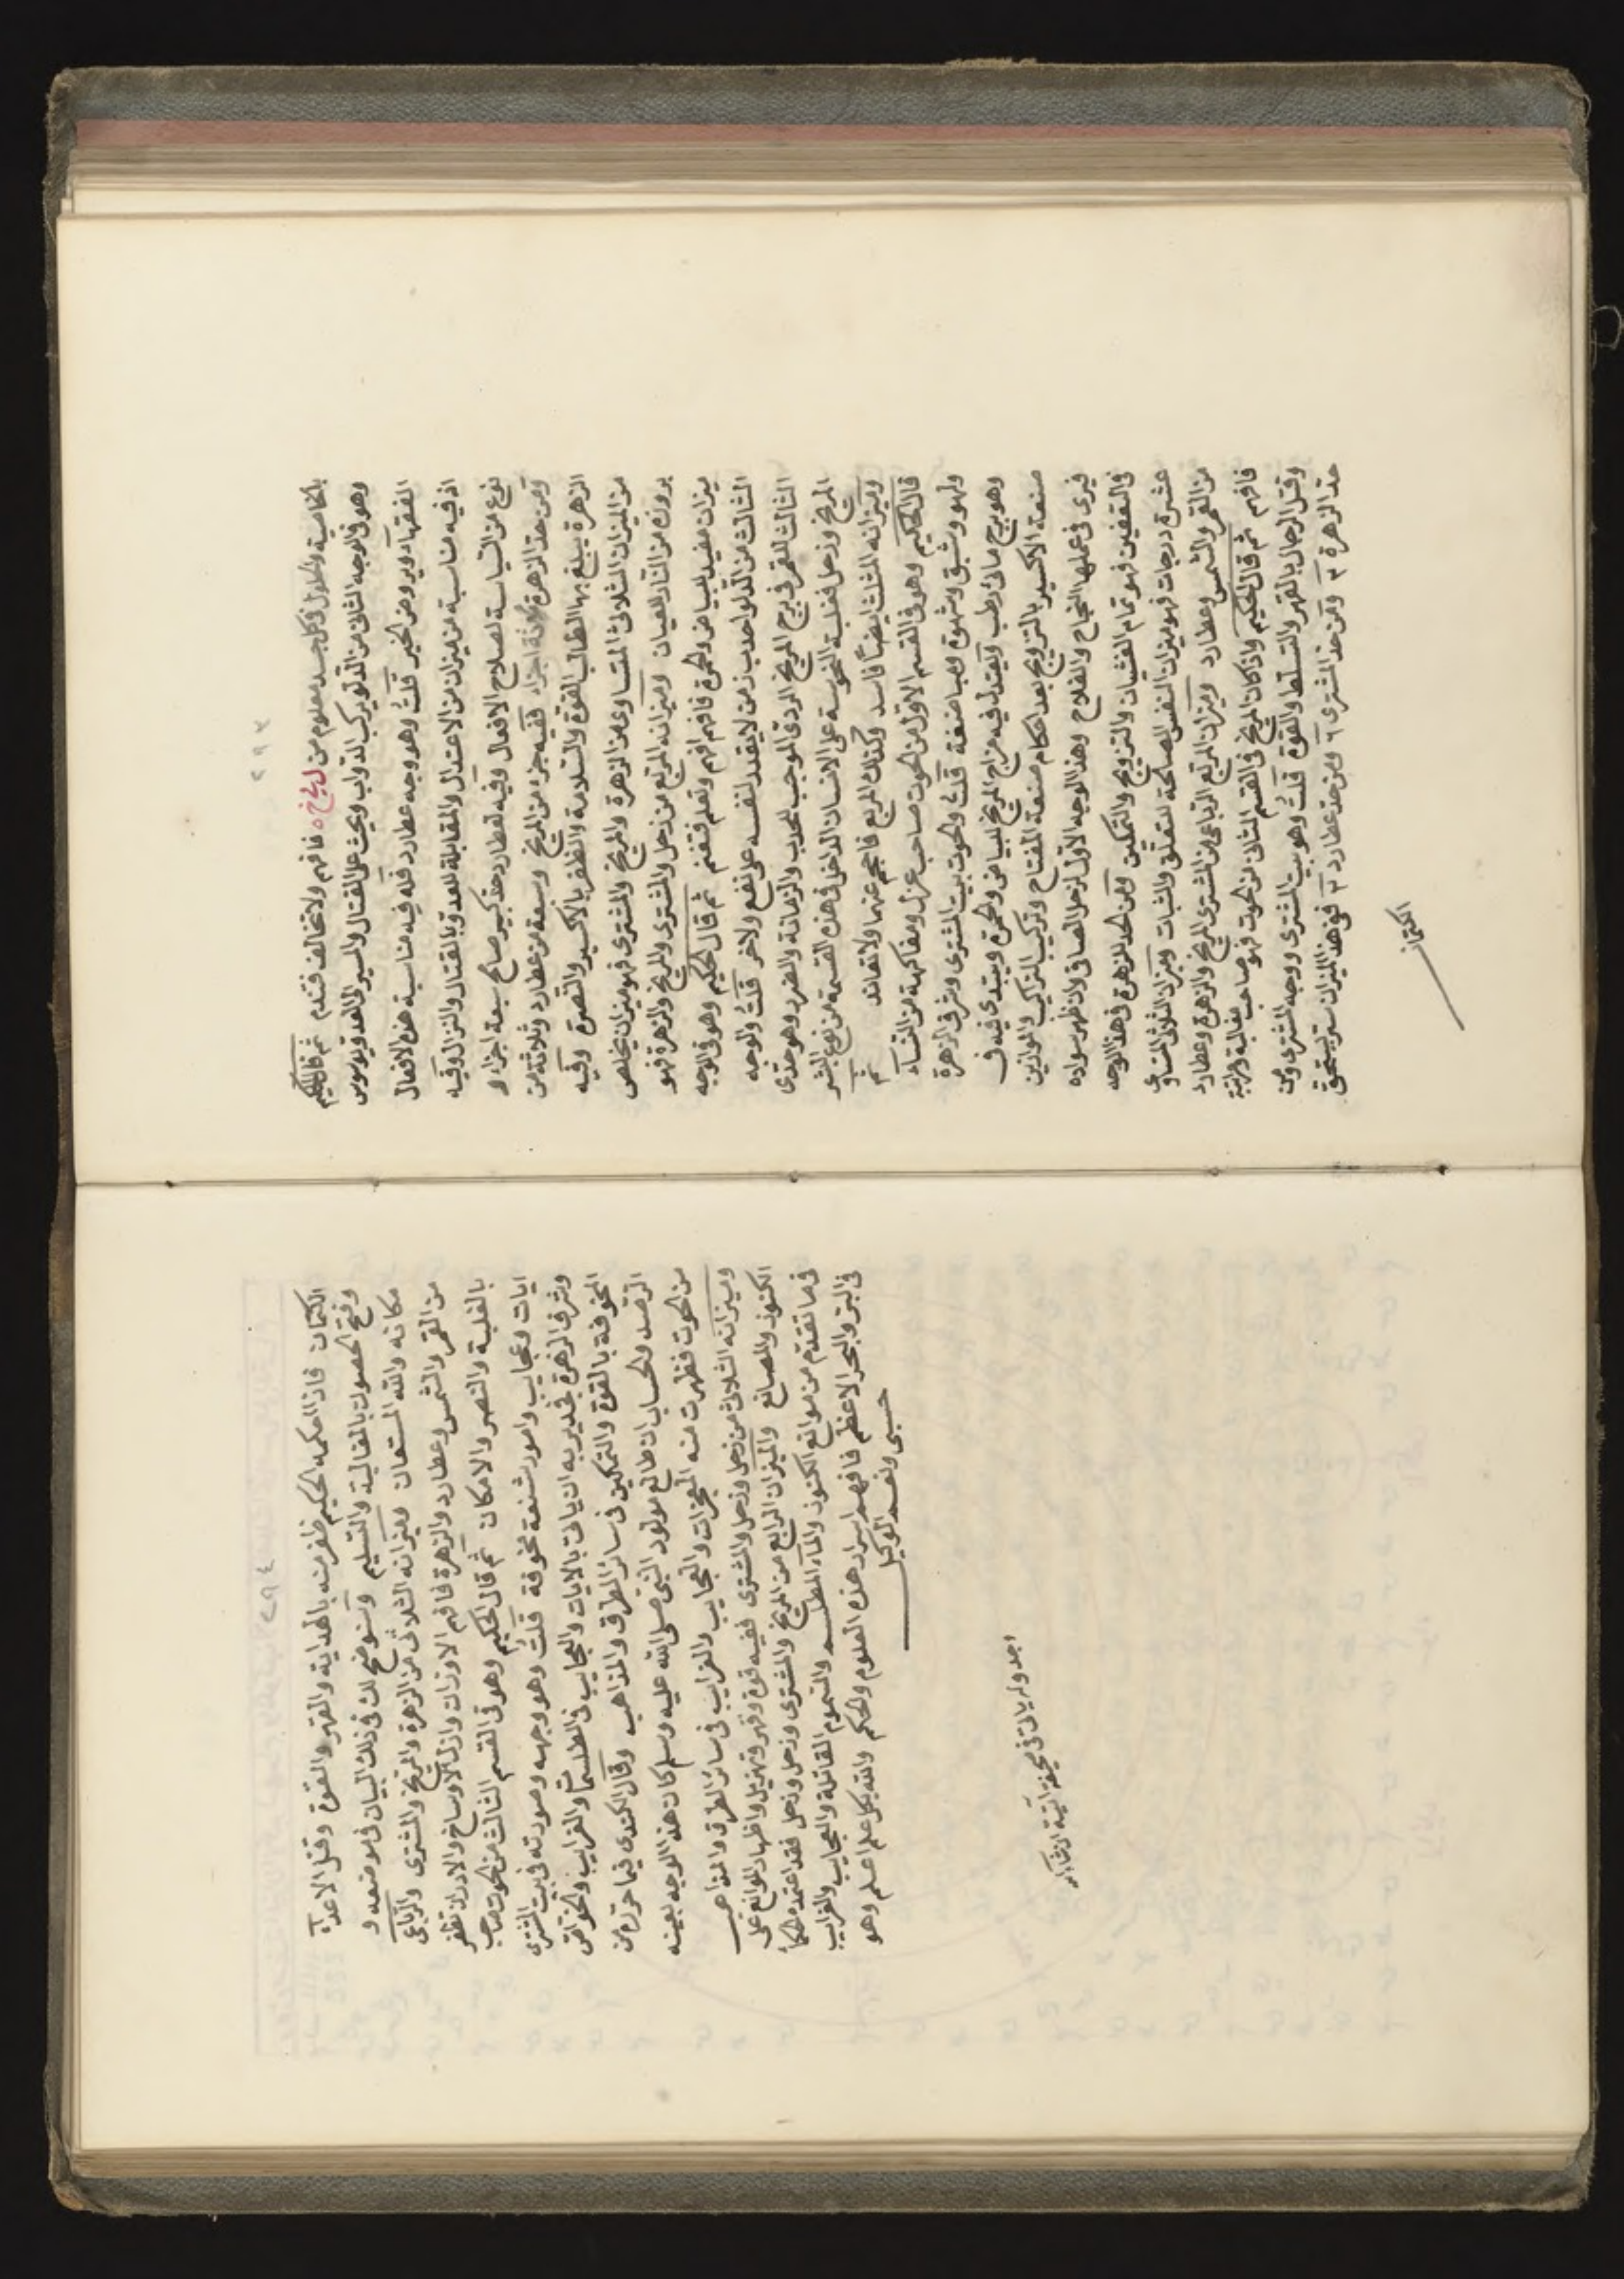 ٢٩٣
بالخاصية والحلول في كل جسد معلوم من فافهم ولا تخالف فتندم ثم قال الحكيم
وهو في الوجه الثاني من الدلو يركب الدواب ويحث على القتال والمسير الى العدو ويوسوس
الفقهاء ويروض الخير قلت وهو وجه عطارد فله فيه مناسبة هذه الافعال
اذ فيه مناسبة من ميزان من الاعتدال والمقابلة للعدو بالقتال والنزال وفيه
نوع من السياسة لصلاح الافعال وفيه لعطارد حد كبير صالح سبعة اجزاء و
ومن حد الزهرة اجزاء ففيه جزء من المريخ وسبعة من عطارد وثلاثة من
الزهرة يبلغ بها الطالب القوة والسلامة والظفر بالاكسير والنصرة وفيه
من الميزان الثلاثي المتساوي من الزهرة والمريخ والمشتري فهو ميزان يخلص
بروزه من النار للعيان وميزانه المربع من زحل والمشتري والمريخ والزهرة فهو
ميزان مفيد للبياض والحمرة فافهم افهم وتعلم فتغنم ثم قال الحكيم وهو في الوجه
الثالث من الدلو احدب زمن لا يقدر لنفسه على نفع ولا خر قلت والوجه
الثالث للقمر في برج المريخ الردي الموجب للحدب والزمانة والضرر وهو حدي
المريخ وزحل فغلبة النحوسة على الانسان الداخل في هذه القسمة من نوع البشر
وميزانه المثلث ايضا فاسد وكذلك المربع فاحجم عنهما ولا تعاند ثم
قال الحكيم وهو في القسم الاول من الحوت صاحب عزل ومفاكهة من النساء
ولهو وشبق وشهوة ومباضعة قلت والحوت بيت المشتري وشرف الزهرة
وهو برج مائي رطب ويعتدل فيه مزاج المريخ للبياض والحمرة ويبتدي فيه في
صنعة الاكسير بالتزويج بعد احكام صنعة المفتاح وتركيب التراكيب والموازين
فيرى في عملها النجاح والفلاح وهذا الوجه الاول لزحل الصافي ولان ظهر سواده
في التعفين فهو تمام الغشيان والتزويج والتمكين ومن الحد للزهرة في هذا الوجه
عشرة درجات فهو ميزان النفس الصالحة للتعلق والثبات وميزان الثلاثي المتساوي
من القمر والشمس وعطارد وميزان المربع الرباعي من المشتري والمريخ والزهرة وعطارد
فافهم ثم قال الحكيم واذا كان المريخ في القسم الثاني من الحوت فهو صاحب مغالبة وهزيمة
وقتل الرجال بالقهر والتسلط والقوة قلت وهو بيت المشتري ووجه المشتري ومن
حد الزهرة ٢ ومن حد المشتري ٦ ومن حد عطارد ٢ ففي هذا الميزان سر يستحق
الكتمان
٢٩٤
الكتمان فاذا احكمه الحكيم ظفر منه بالهداية والقهر والقوة وقتل الاعداء
وفتح الحصون بالمغالبة والتسليم وسنوضح لك في ذلك البيان في موضعه و
مكانه والله المستعان وميزانه الثلاثي من الزهرة والمريخ والمشتري والرباعي
من القمر والشمس وعطارد والزهرة فافهم الاوزان وازل الاوساخ والادران تظفر
بالغلبة والنصر والامكان ثم قال الحكيم وهو في القسم الثالث من الحوت صاحب
ايات وعجايب وامور شنعة مخوفة قلت وهو وجهه وصورته في بيت المشتري
وشرف الزهرة فجدير به ان ياتي بالايات والعجايب في الطلسمات والغرايب والخوافض
المخوفة بالقوة والتمكين في سائر الطرق والمذاهب وقال الكندي فيما حرره من
الرصد والحساب ان طالع مولود النبي صلى الله عليه وسلم كان هذا الوجه بعينه
من الحوت فظهرت منه المعجزات والعجايب والغرايب في سائر الطرق والمذاهب
وميزانه الثلاثي من زحل وزحل والمشتري ففيه قوة وقهر وتهزيل واظهار الموانع على
الكنوز والمصانع والميزان الرابع من المريخ والمشتري وزحل وزحل فقد اعتمده الحكما
في ما تقدم من موانع الكنوز والماء المطلسم والسموم القاتلة والعجايب والغرايب
في البر والبحر الاعظم فافهم اسرار هذه العلوم والحكم والله بكل علم اعلم وهو
حسبي ونعم الوكيل
جدوله ياتي في صحيفة اتية ان شاء الله